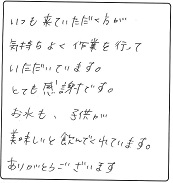 いつも来ていただく方が
気持ちよく作業を行って
いただいています。
とても感謝です。
お水も、子供が
美味しいと飲んでくれています。
ありがとうございます